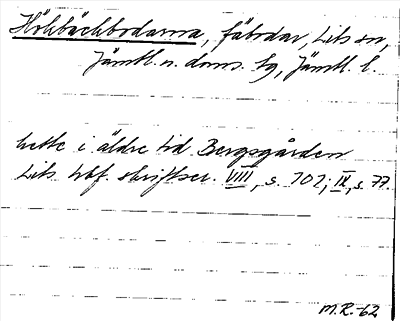 Höhbäckbodarna, fäbodar, Lits sn,
Jämtl. n. doms. tg, Jämtl. l.
hette i äldre tid Bergsgården
Lits hbf. skriftser. VIII, s. 102; IX, s. 77.
M.R.-62